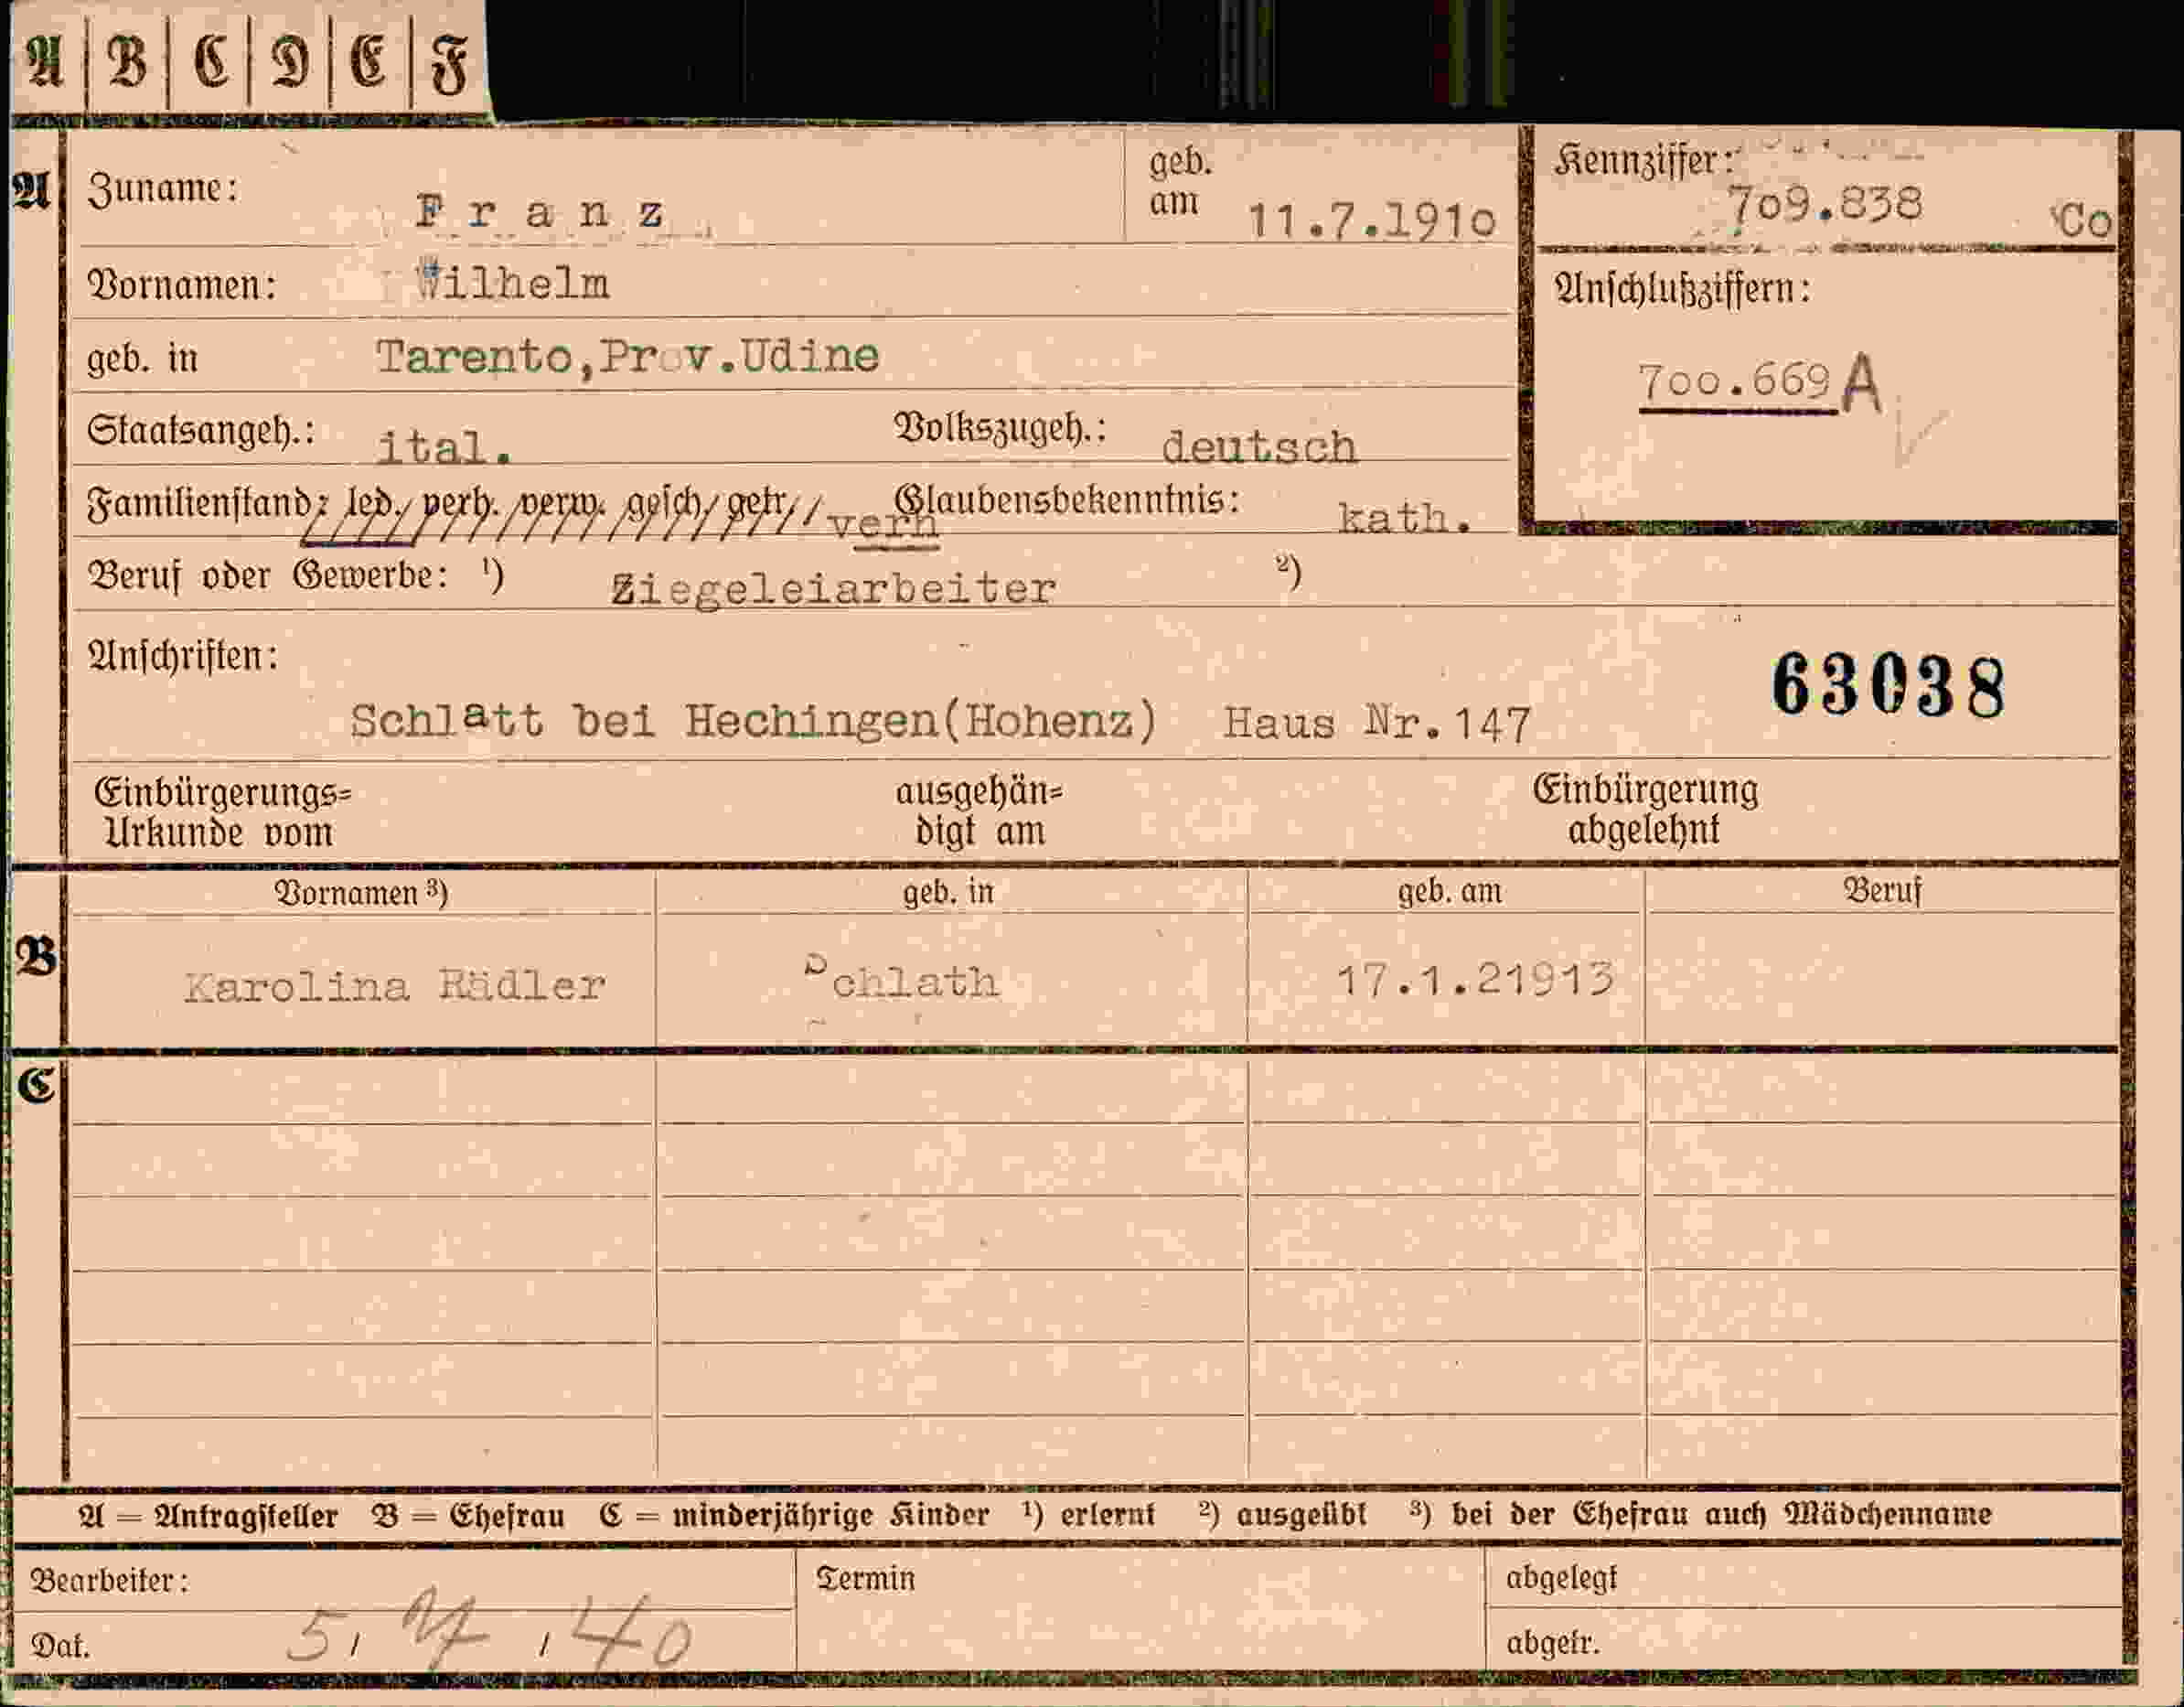 A B C D E F
A Zuname: Franz geb. am 11.7.1910 Kennziffer: 709.838 Co
Vornamen: Wilhelm
geb. in Tarento,Prov.Udine
Anschlußziffern:
700.669 A
Staatsangeh.: ital. Volkszugeh.: deutsch
Familienstand: led. verh. verw. gesch. getr. verh Glaubensbekenntnis: kath.
Beruf oder Gewerbe: 1) Ziegeleiarbeiter 2)
Anschriften:
63038
Schlatt bei Hechingen(Hohenz) Haus Nr.147
Einbürgerungs= ausgehän= Einbürgerung
Urkunde vom digt am abgelehnt
Vornamen 3) geb. in geb. am Beruf
B Karolina Rädler Schlath 17.1.21913
C
A = Antragsteller B = Ehefrau C = minderjährige Kinder 1) erlernt 2) ausgeübt 3) bei der Ehefrau auch Mädchenname
Bearbeiter: Termin abgelegt
Dat. 5, 40 abgetr.